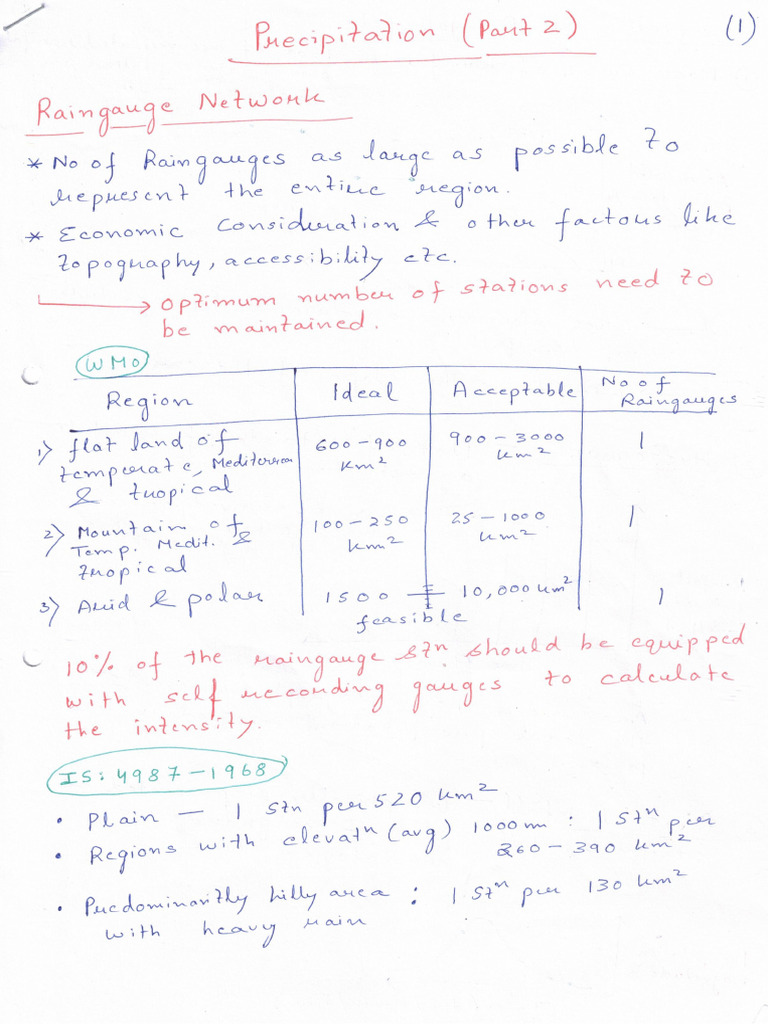 Precipitation (Part 2)
(1)
Raingauge Network
* No of Raingauges as large as possible to
represent the entire region.
* Economic Consideration & other factors like
topography, accessibility etc.
→ optimum number of stations need to
be maintained.
WMO
Region | Ideal | Acceptable | No of Raingauges
1) flat land of temperate, Mediterran & tropical | 600-900 km² | 900-3000 km² | 1
2) Mountain of Temp. Medit. & tropical | 100-250 km² | 25-1000 km² | 1
3) Arid & polar | 1500 - 10,000 km² feasible | 1
10% of the raingauge stn should be equipped
with self recording gauges to calculate
the intensity.
IS: 4987-1968
• Plain — 1 stn per 520 km²
• Regions with elevatn (avg) 1000m : 1 stn per
260-390 km²
• Predominantly hilly area : 1 stn per 130 km²
with heavy rain